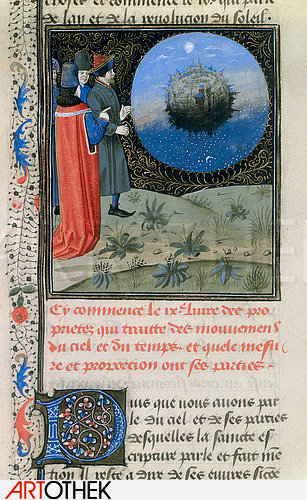 et commence le
de lan et de la revolution du soleil.
Cy commence le ixe. livre des pro
prietez qui traitte des mouvemens
du ciel et du temps. et quele mesu
re et proporcion ont ses parties.
Puis que nous avons par
le du ciel et de ses parties
desquelles la saincte es
cripture parle et fait men
tion Il reste a dire de ses euvres
ARTOTHEK